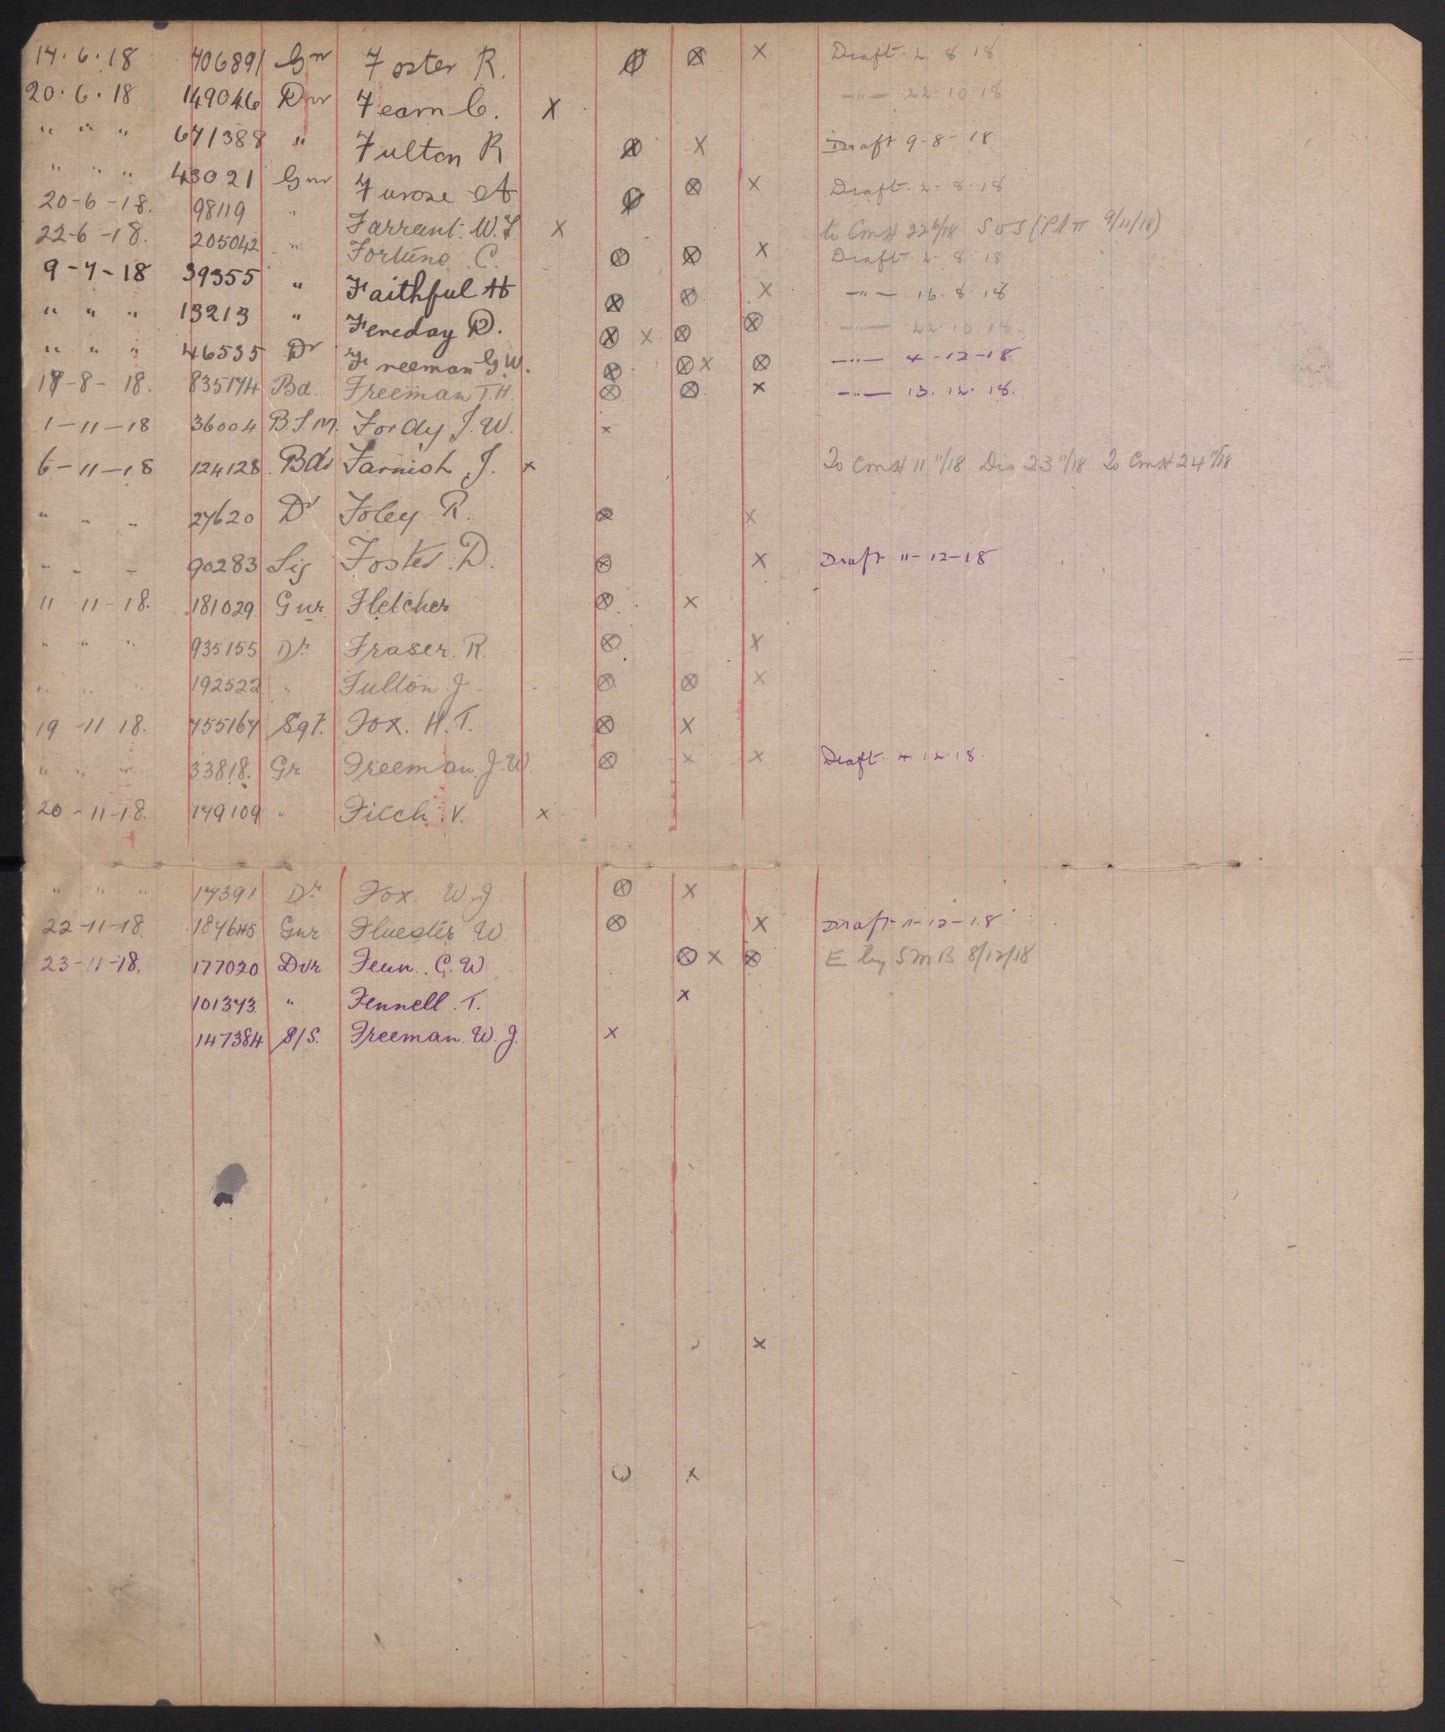 14.6.18 706891 Gnr Foster R. ⊗ ⊗ X Draft 2.8.18
20.6.18 149046 Dvr Fearn C. X —"— 22.10.18
" " " 671388 " Fulton R ⊗ X Draft 9-8-18
" " " 43021 Gnr Furose A ⊗ ⊗ X Draft. 2.8.18
20-6-18. 98119 " Farrant. W.F. X to Const 22/6/18 SOS 9/11/18)
22-6-18. 205042 " Fortune C. ⊗ ⊗ X Draft. 2.8.18
9-7-18 39355 " Faithful H ⊗ ⊗ X —"— 16.8.18
" " " 13213 " Fereday D. ⊗ X ⊗ ⊗ —"— 22.10.18
" " " 46535 Dr Freeman G.W. ⊗ ⊗ X ⊗ —"— 4-12-18.
-8-18. 835174 Bd. Freeman T.H. ⊗ ⊗ X —"— 13.12.18.
1-11-18 36004 B.S.M. Fordy J.W. X
6-11-18 124128 Bdr Farnish J. X To Const 11"/18 Dis 23"/18 To Const 24"/18
" " " 27620 Dr Foley R. ⊗ X
" " " 90283 Sig Foster. D. ⊗ X Draft 11-12-18
11 11-18. 181029 Gnr Fletcher ⊗ X
" " " 935155 Dr Fraser. R. ⊗ X
" " " 192522 " Fulton J. ⊗ ⊗ X
19-11 18. 755167 Sgt. Fox. H.T. ⊗ X
" " " 33818. Gr Freeman J.W. ⊗ X X Draft. 4.12.18.
20-11-18. 149109 " Filch. V. X
" " " 17391 Dr Fox W.J ⊗ X
22-11-18. 187645 Gnr W ⊗ X Draft 11-12-18
23-11-18. 177020 Dvr Fenn. C.W ⊗ X ⊗ E by SMB 8/12/18
101373 " Fennell. T. X
147384 S/S. Freeman. W.J. X
X
X